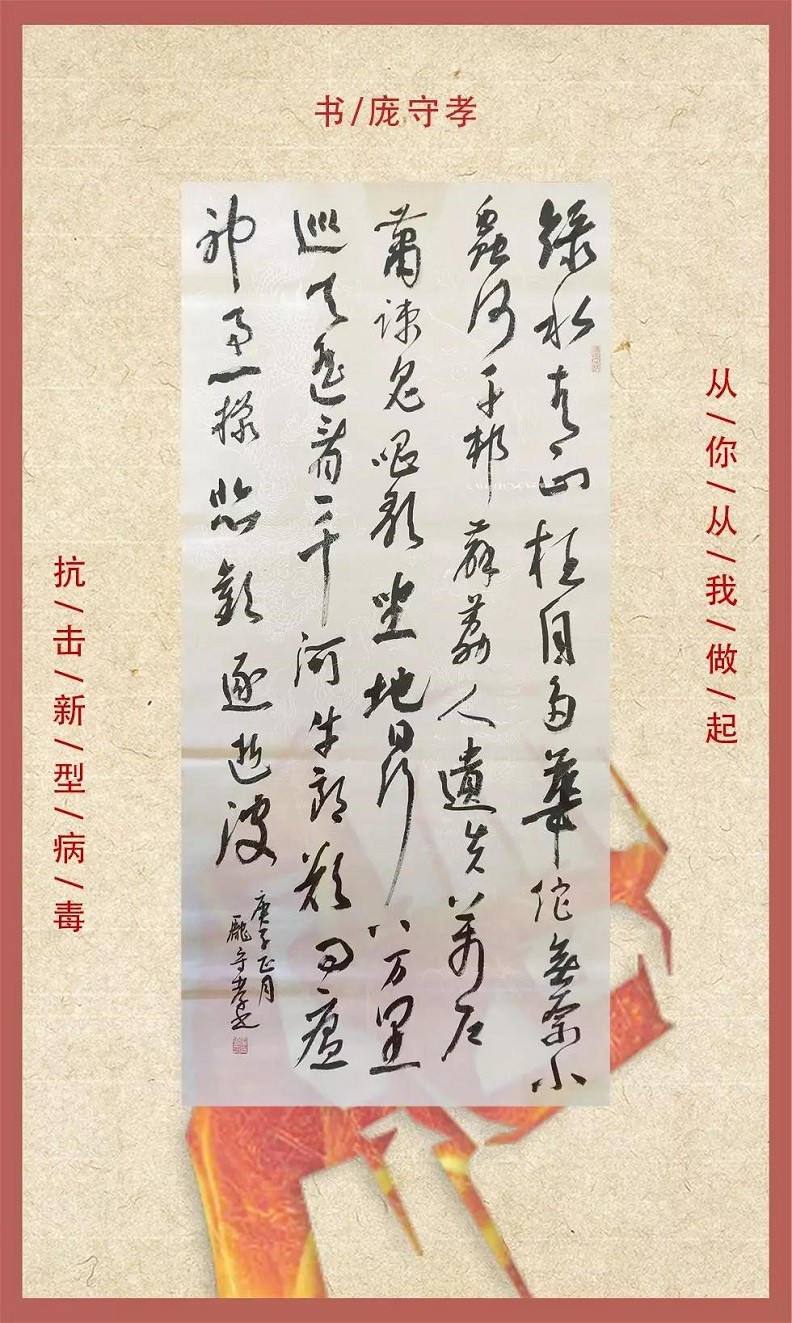 书/庞守孝
綠水青山枉自多華佗無奈小
蟲何千邨薜荔人遺矢萬户
蕭疎鬼唱歌坐地日行八万里
巡天遥看一千河牛郎欲问瘟
神事一樣悲歡逐逝波
庚子正月
龐守孝书
从/你/从/我/做/起
抗/击/新/型/病/毒